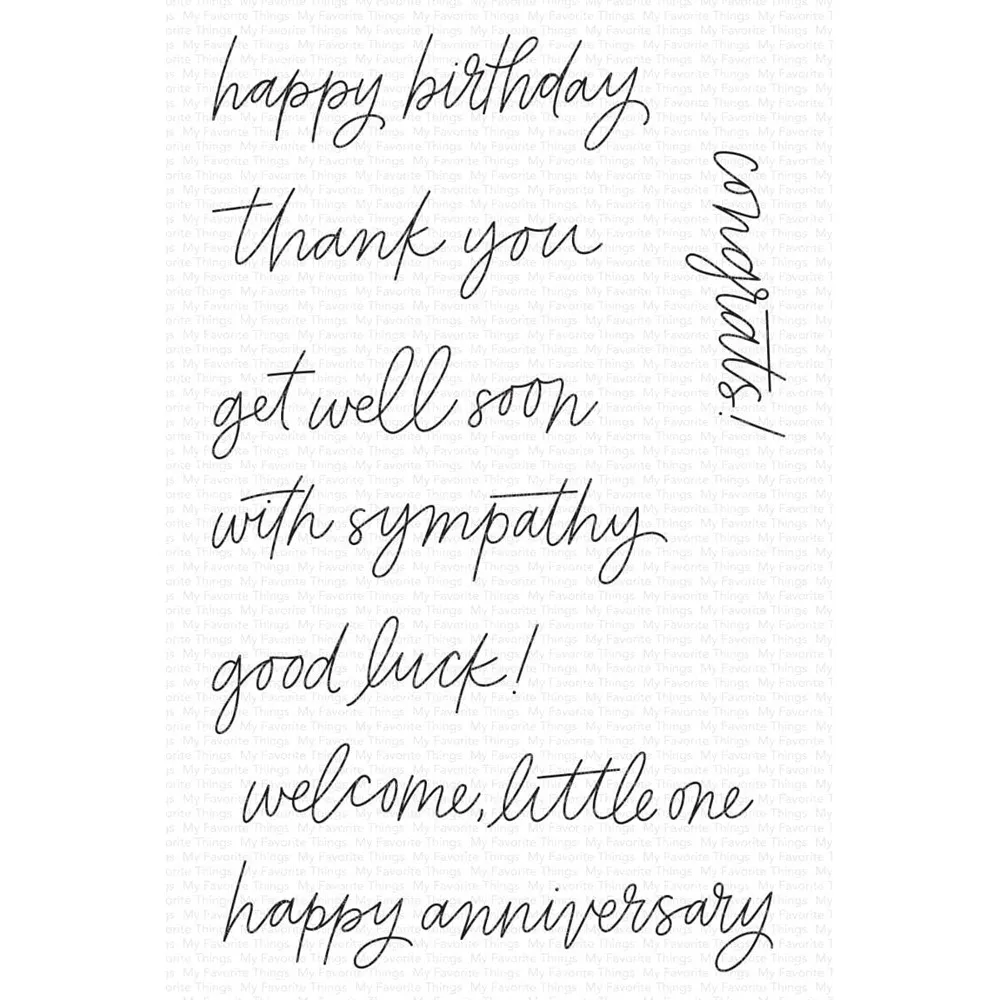 happy birthday
congrats!
thank you
get well soon
with sympathy
good luck!
welcome, little one
happy anniversary
My Favorite Things